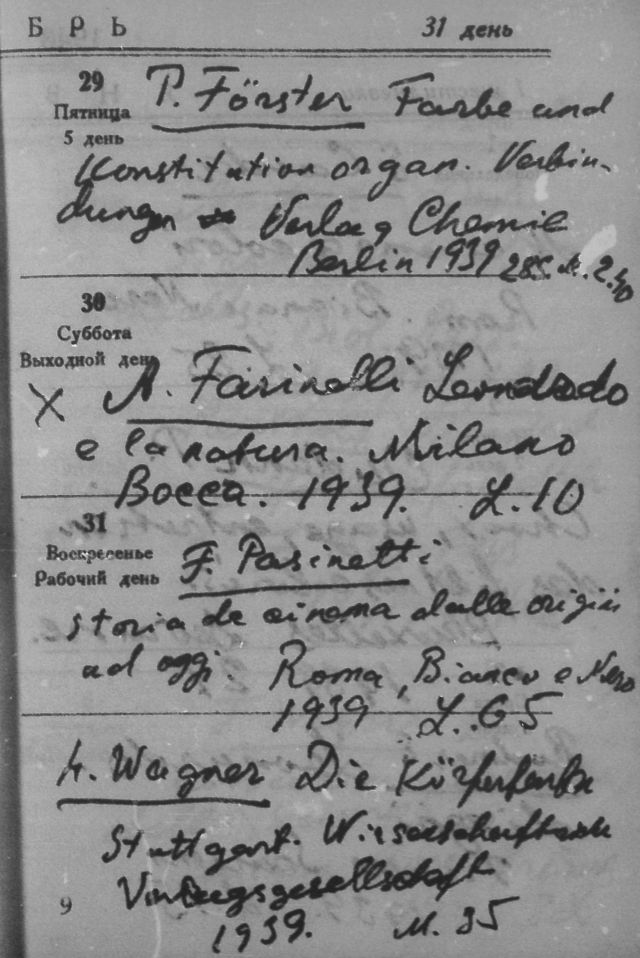 БРЬ 31 день
29 P. Förster Farbe und
Пятница
5 день
Konstitution organ. Verbin-
dungen Verlag Chemie
Berlin 1939 28S. M. 2.40
30
Суббота
Выходной день
X A. Farinelli Leonardo
e la natura. Milano
Bocca. 1939. L. 10
31
Воскресенье F. Pasinetti
Рабочий день
storia de cinema dalle origini
ad oggi. Roma, Bianco e Nero
1939 L. 65
H. Wagner Die
Stuttgart. Wissenschaftlich
Verlagsgesellschaft
9
1939. M. 35